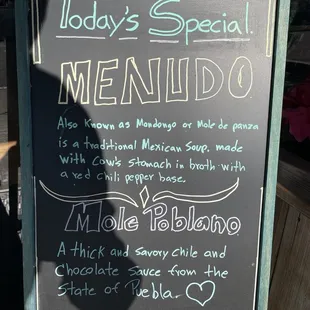 Today's Special.
MENUDO
Also Known as Mondongo or Mole de panza
is a traditional Mexican Soup, made
with Cow's Stomach in broth with
a red chili pepper base.
Mole Poblano
A thick and savory chile and
Chocolate sauce from the
State of Puebla.